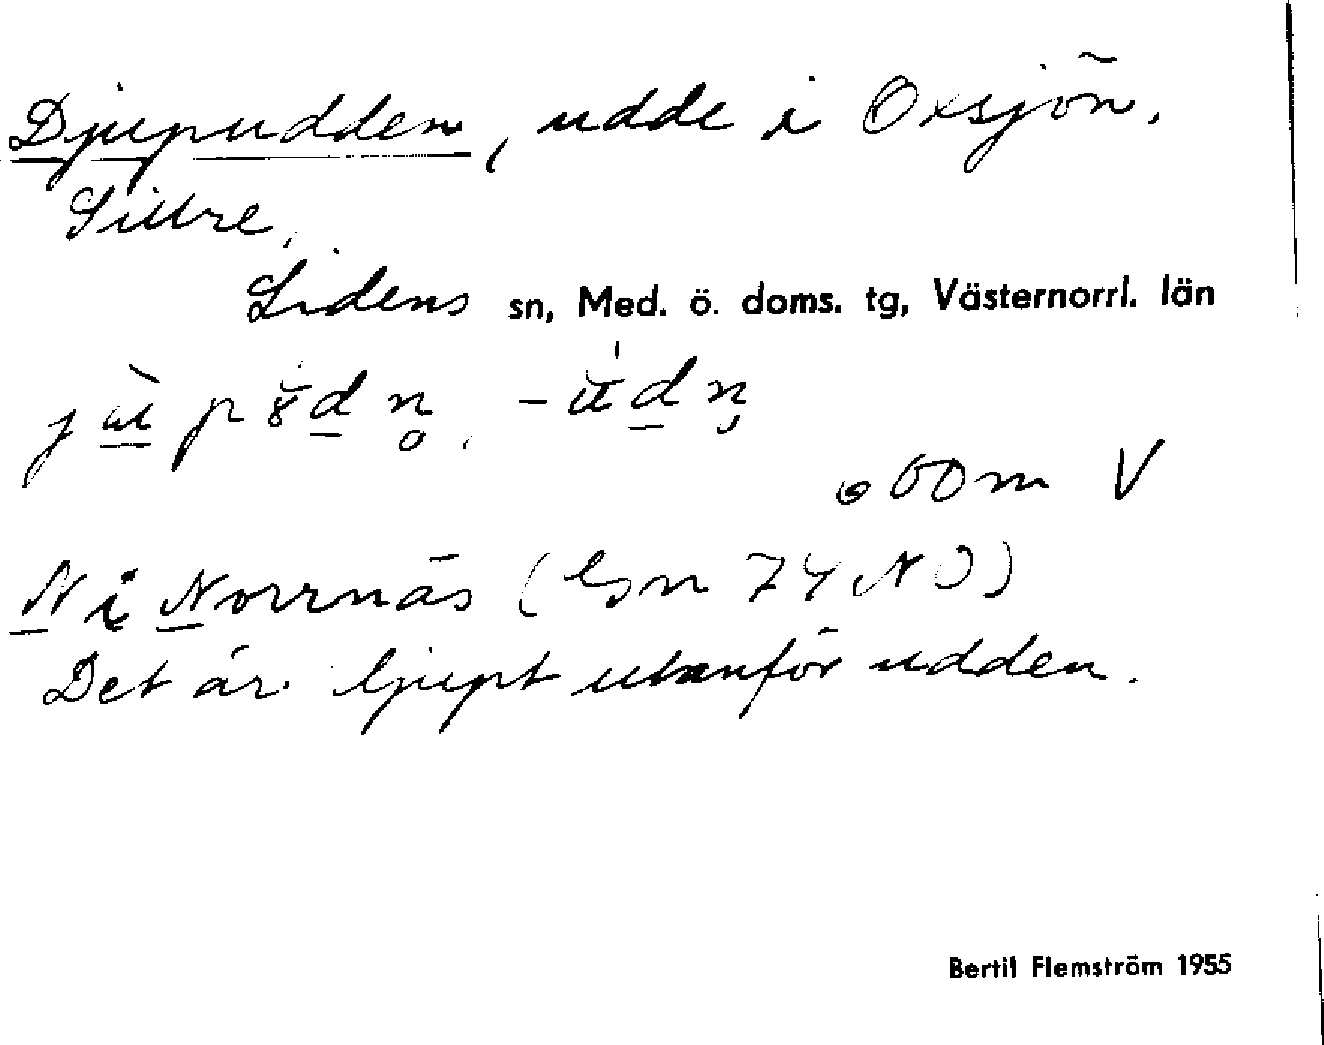 Djupudden, udde i Oxsjön.
Sittre,
Lidens sn, Med. ö. doms. tg, Västernorrl. län
600m V
N i Norrnäs (
Det är ljupt utanför udden.
Bertil Flemström 1955